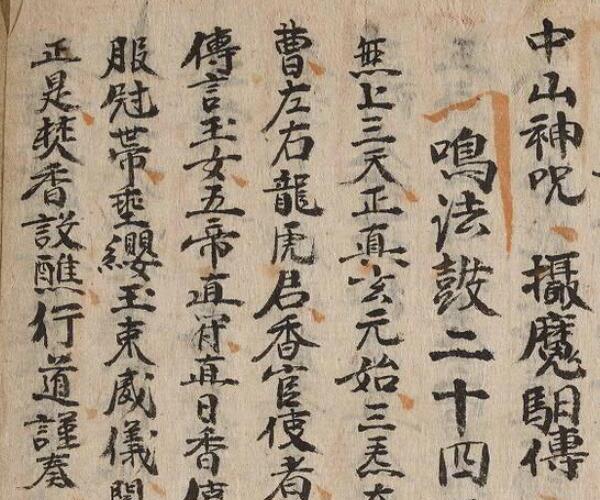 中山神呪攝魔馹傳
鳴法鼓二十四
無上三天正真玄元始三炁太
曹左右龍虎君香官使者
傳言玉女五帝直符直日香傳
服冠帶垂纓玉東威儀閒
正是焚香設醮行道謹奏